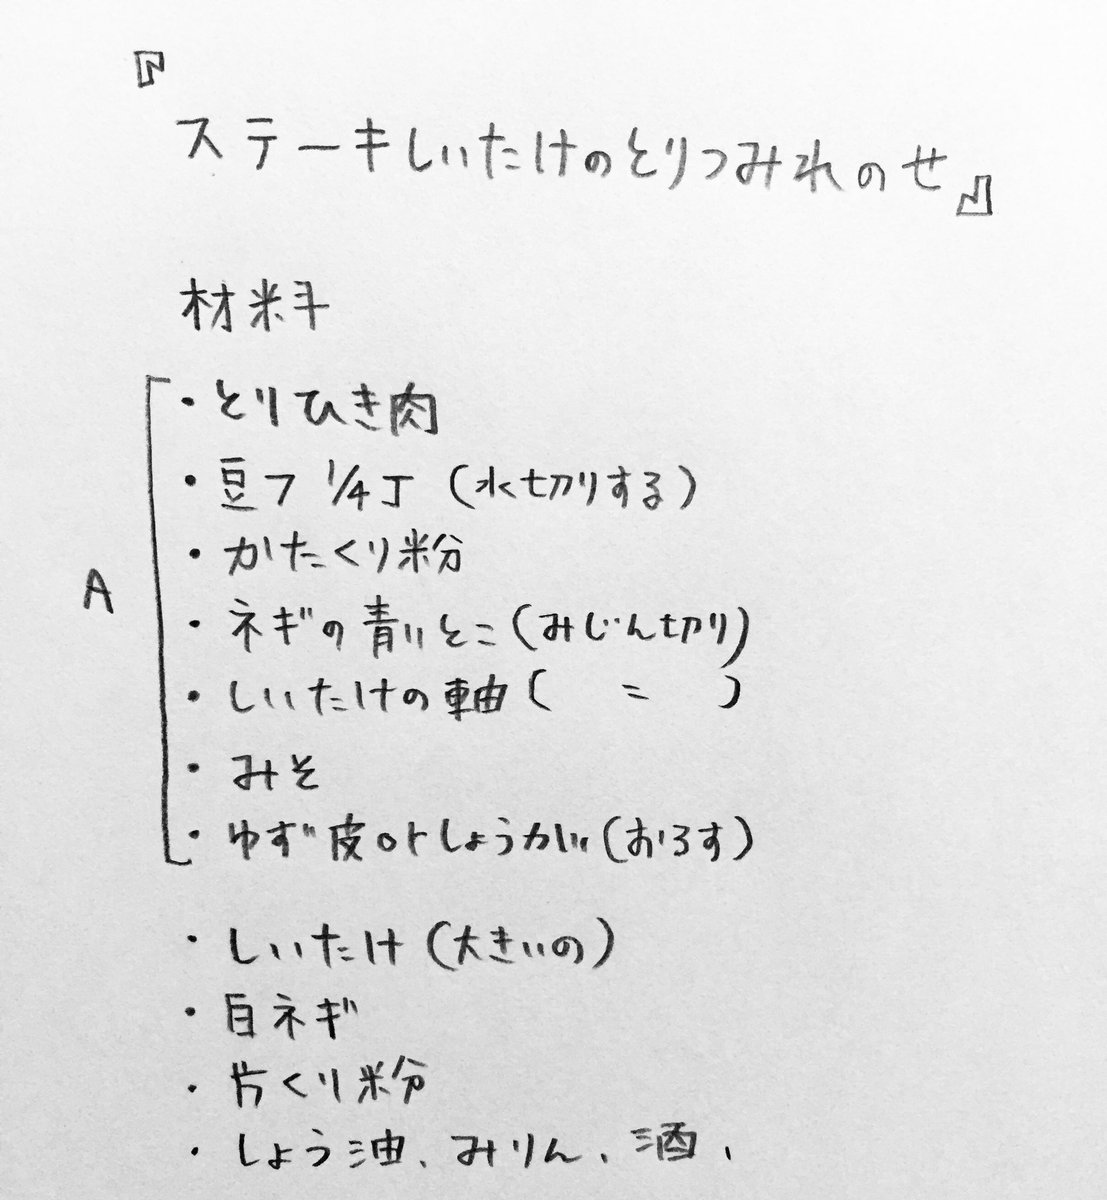 『
ステーキしいたけのとりつみれのせ』
材料
・とりひき肉
・豆フ 1/4丁 (水切りする)
・かたくり粉
A
・ネギの青いとこ(みじん切り)
・しいたけの軸( 〃 )
・みそ
・ゆず皮orしょうがい(おろす)
・しいたけ(大きいの)
・白ネギ
・片くり粉
・しょう油、みりん、酒、